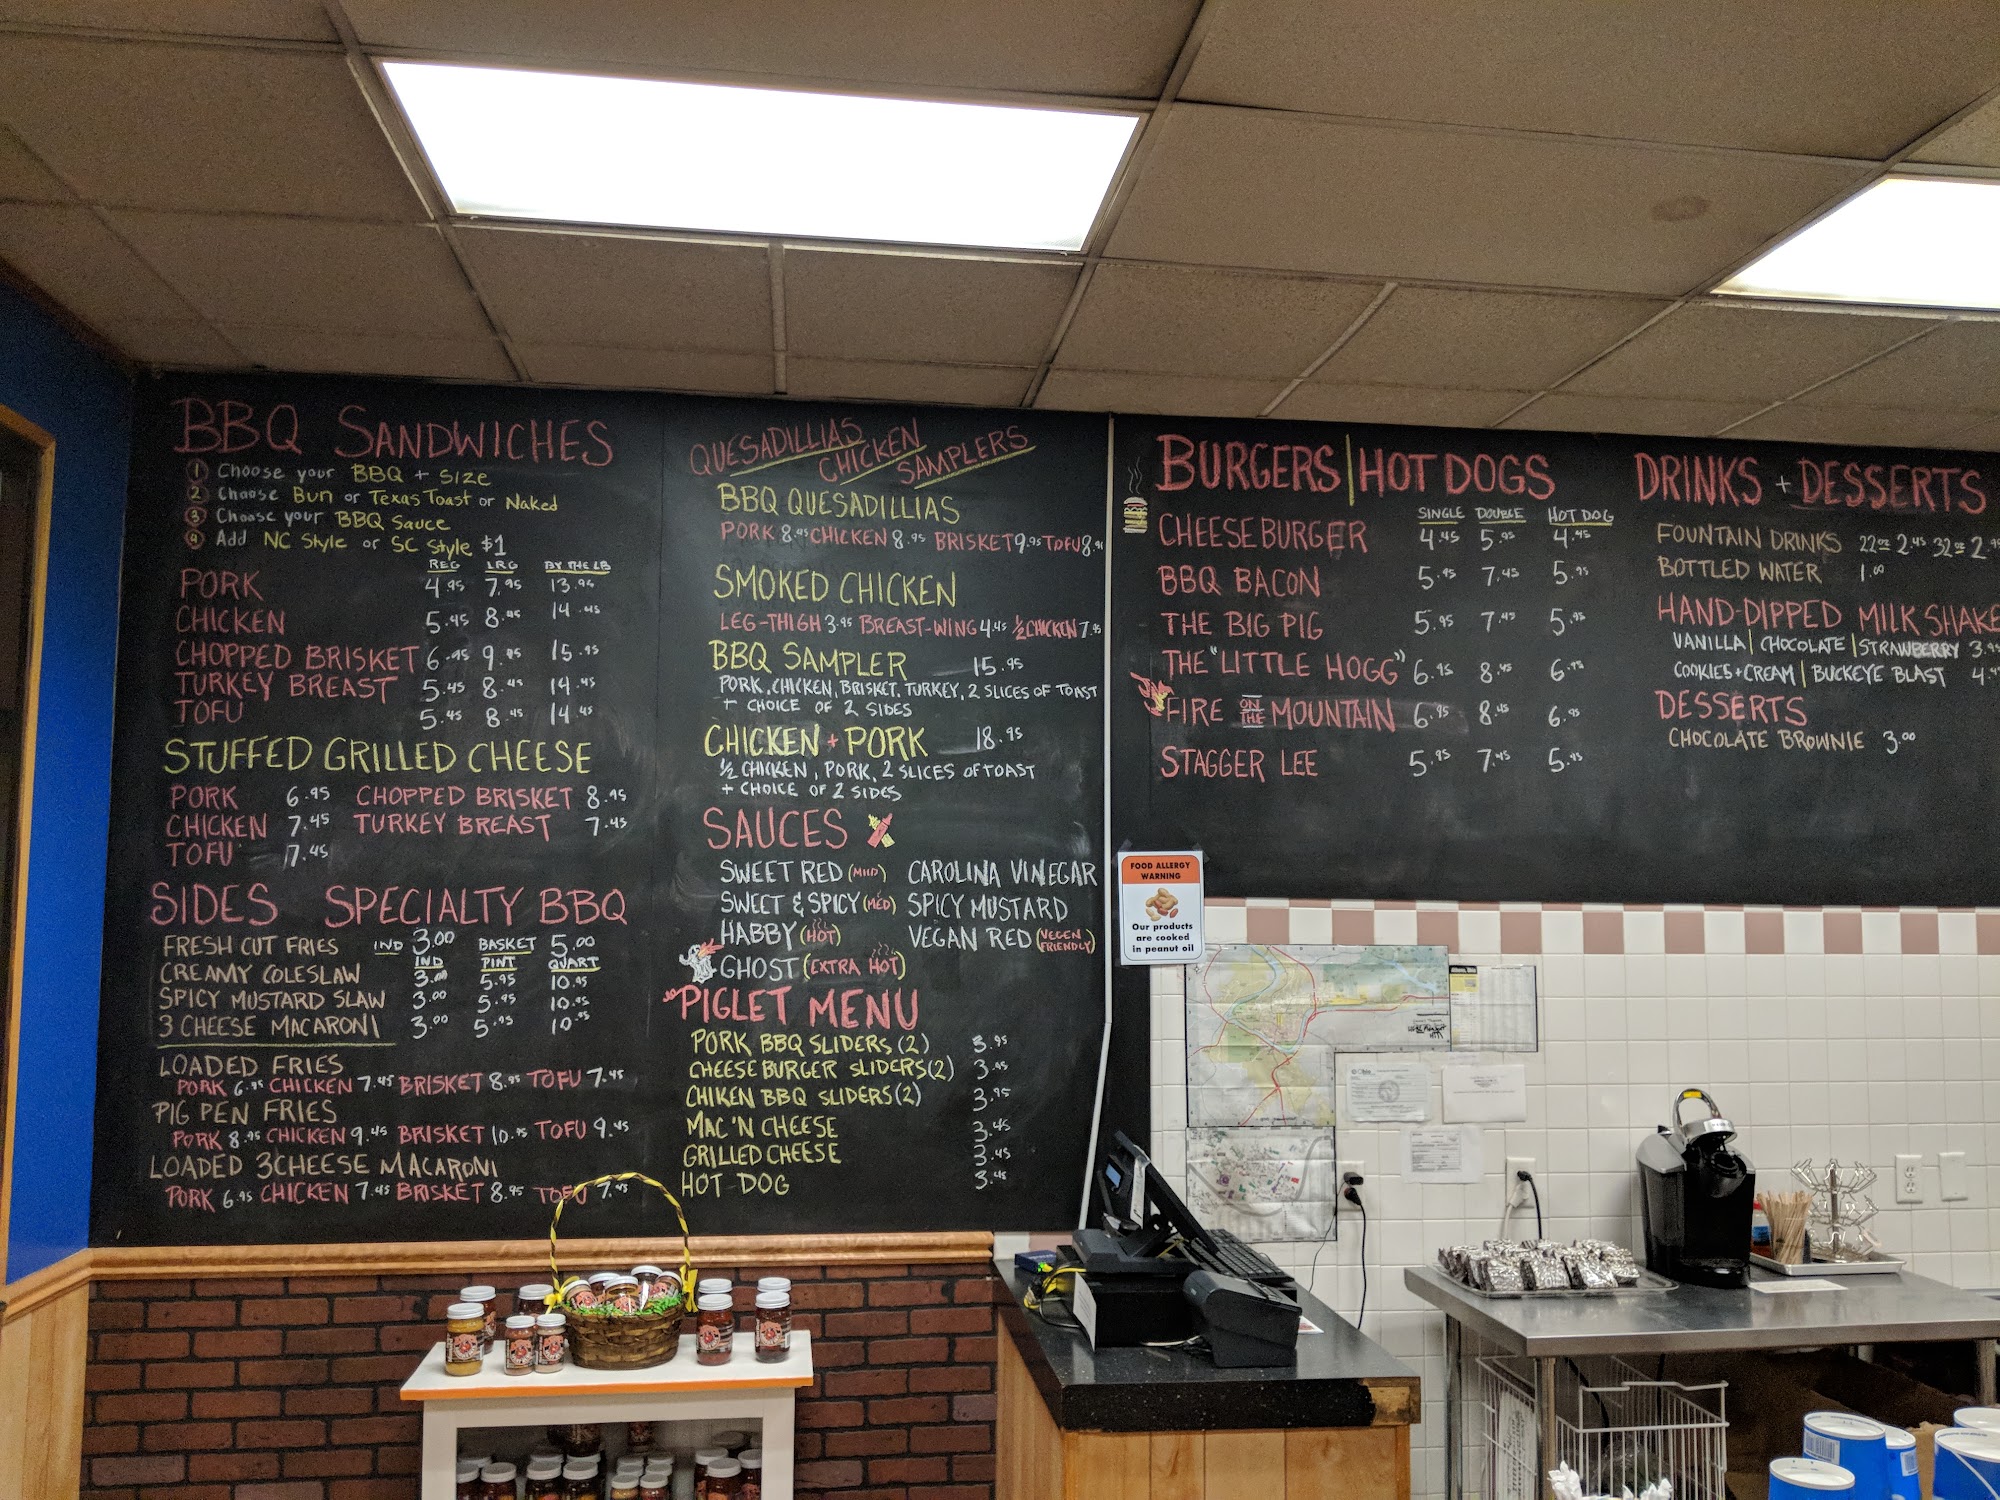 BBQ SANDWICHES
1 Choose your BBQ + Size
2 Choose Bun or Texas Toast or Naked
3 Choose your BBQ Sauce
4 Add NC Style or SC Style $1
REG LRG BY THE LB
PORK 4.95 7.95 13.95
CHICKEN 5.45 8.45 14.45
CHOPPED BRISKET 6.45 9.95 15.95
TURKEY BREAST 5.45 8.45 14.45
TOFU 5.45 8.45 14.45
STUFFED GRILLED CHEESE
PORK 6.95 CHOPPED BRISKET 8.95
CHICKEN 7.45 TURKEY BREAST 7.45
TOFU 7.45
SIDES SPECIALTY BBQ
FRESH CUT FRIES IND 3.00 BASKET 5.00
IND PINT QUART
CREAMY COLESLAW 3.00 5.95 10.95
SPICY MUSTARD SLAW 3.00 5.95 10.95
3 CHEESE MACARONI 3.00 5.95 10.95
LOADED FRIES
PORK 6.95 CHICKEN 7.45 BRISKET 8.95 TOFU 7.45
PIG PEN FRIES
PORK 8.95 CHICKEN 9.45 BRISKET 10.95 TOFU 9.45
LOADED 3CHEESE MACARONI
PORK 6.95 CHICKEN 7.45 BRISKET 8.95 TOFU 7.45
QUESADILLIAS
CHICKEN
SAMPLERS
BBQ QUESADILLIAS
PORK 8.95 CHICKEN 8.95 BRISKET 9.95 TOFU
SMOKED CHICKEN
LEG-THIGH 3.95 BREAST-WING 4.45 ½ CHICKEN 7.95
BBQ SAMPLER 15.95
PORK, CHICKEN, BRISKET, TURKEY, 2 SLICES OF TOAST
+ CHOICE OF 2 SIDES
CHICKEN + PORK 18.95
½ CHICKEN, PORK, 2 SLICES OF TOAST
+ CHOICE OF 2 SIDES
SAUCES
SWEET RED (MILD) CAROLINA VINEGAR
SWEET & SPICY (MED) SPICY MUSTARD
HABBY (HOT) VEGAN RED (VEGEN FRIENDLY)
GHOST (EXTRA HOT)
PIGLET MENU
PORK BBQ SLIDERS (2) 3.95
CHEESEBURGER SLIDERS (2) 3.95
CHIKEN BBQ SLIDERS (2) 3.95
MAC 'N CHEESE 3.45
GRILLED CHEESE 3.45
HOT DOG 3.45
BURGERS | HOT DOGS
SINGLE DOUBLE HOT DOG
CHEESEBURGER 4.45 5.95 4.45
BBQ BACON 5.95 7.45 5.95
THE BIG PIG 5.95 7.45 5.95
THE "LITTLE HOGG" 6.95 8.45 6.95
FIRE ON THE MOUNTAIN 6.95 8.45 6.95
STAGGER LEE 5.95 7.45 5.95
DRINKS + DESSERTS
FOUNTAIN DRINKS 22oz 2.45 32oz
BOTTLED WATER 1.00
HAND-DIPPED MILK SHAKE
VANILLA | CHOCOLATE | STRAWBERRY
COOKIES + CREAM | BUCKEYE BLAST
DESSERTS
CHOCOLATE BROWNIE 3.00
FOOD ALLERGY
WARNING
Our products
are cooked
in peanut oil